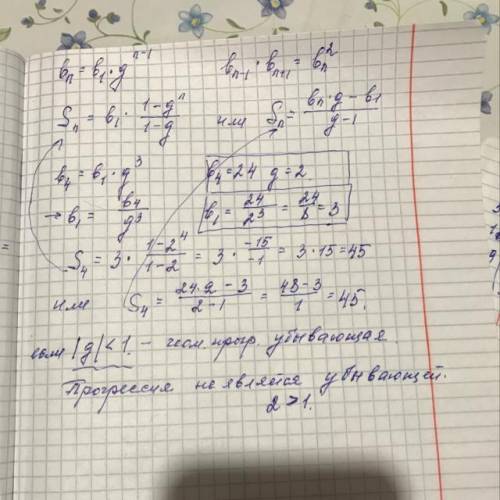 bₙ = b₁ · g^(n-1)   bₙ₋₁ · bₙ₊₁ = bₙ²
Sₙ = b₁ · (1-gⁿ)/(1-g)   или   Sₙ = (bₙ · g - b₁)/(g-1)
b₄ = b₁ · g³   b₄ = 24   g = 2
→ b₁ = b₄/g³   b₁ = 24/2³ = 24/8 = 3
S₄ = 3 · (1-2⁴)/(1-2) = 3 · (-15)/(-1) = 3 · 15 = 45
или   S₄ = (24·2 - 3)/(2-1) = (48-3)/1 = 45.
если |g| < 1. – геом. прогр. убывающая
Прогрессия не является убывающей.
2 > 1.